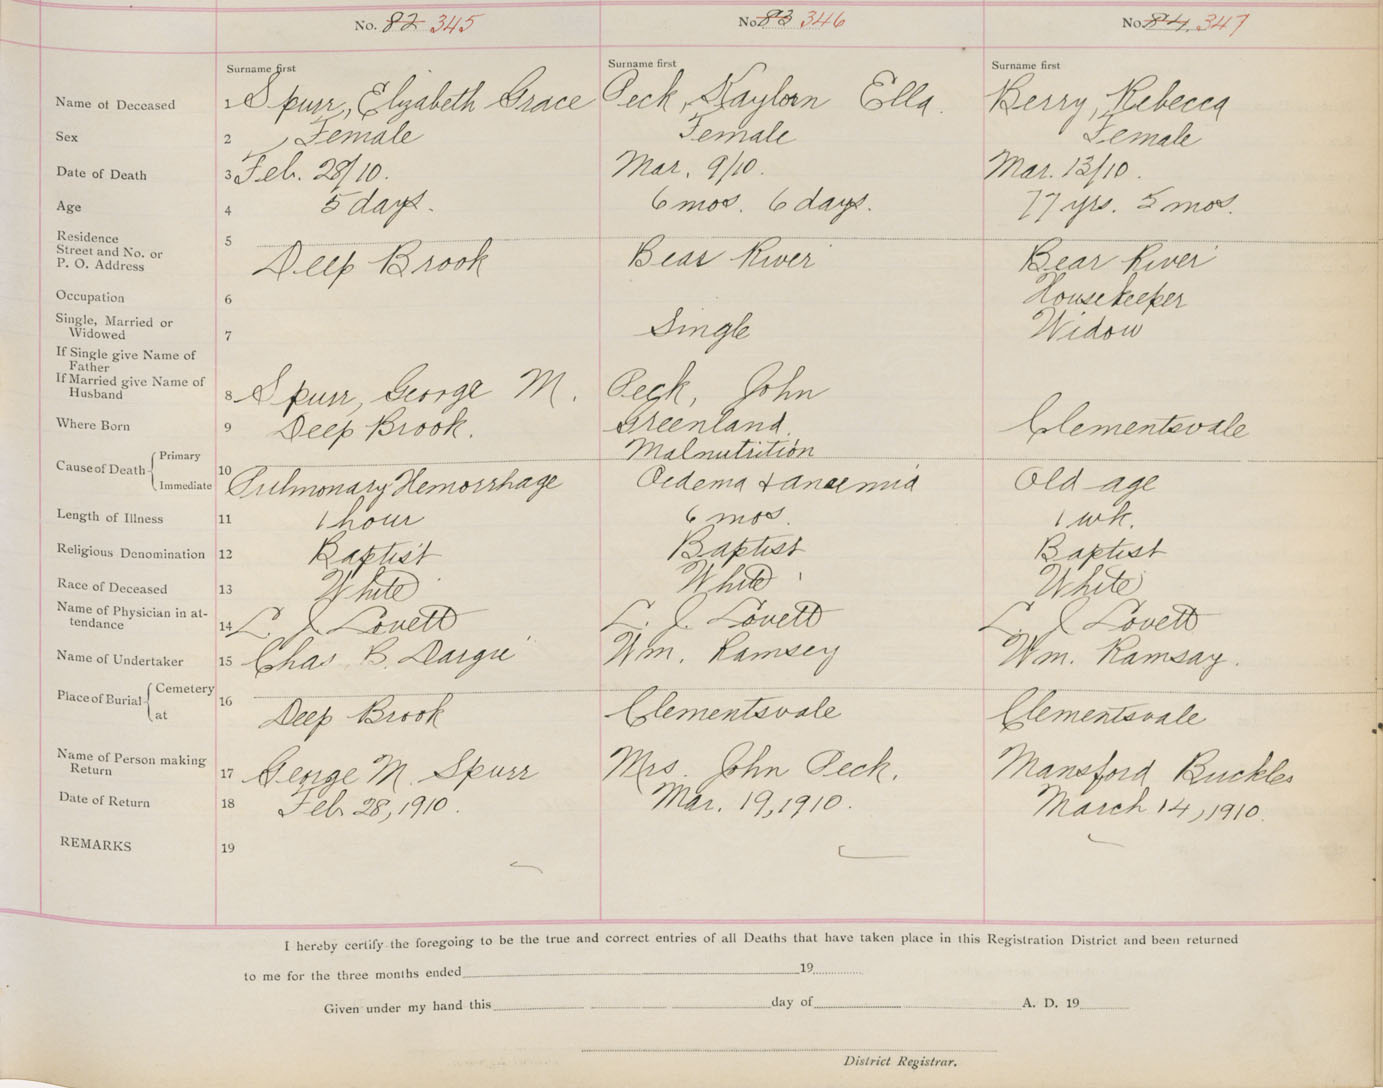 No. 82 345 No. 83 346 No. 84 347
Surname first Surname first Surname first
Name of Deceased 1 Spurr, Elizabeth Grace Peck, Kaylorn Ella. Berry, Rebecca
Sex 2 Female Female Female
Date of Death 3 Feb. 28/10. Mar. 9/10. Mar. 13/10.
Age 4 5 days. 6 mos. 6 days. 77 yrs. 5 mos.
Residence
Street and No. or
P. O. Address 5 Deep Brook Bear River Bear River
Occupation 6 Housekeeper
Single, Married or
Widowed 7 Single Widow
If Single give Name of
Father
If Married give Name of
Husband 8 Spurr, George M. Peck, John
Where Born 9 Deep Brook. Greenland. Clementsvale
Cause of Death Primary Malnutrition
Immediate 10 Pulmonary Hemorrhage Oedema & anaemia Old age
Length of Illness 11 1 hour 6 mos. 1 wk.
Religious Denomination 12 Baptist Baptist Baptist
Race of Deceased 13 White White White
Name of Physician in at-
tendance 14 L. J. Lovett L. J. Lovett L. J. Lovett
Name of Undertaker 15 Chas B. Dargie Wm. Ramsey Wm. Ramsay.
Place of Burial Cemetery
at 16 Deep Brook Clementsvale Clementsvale
Name of Person making
Return 17 George M. Spurr Mrs. John Peck. Mansford Buckles
Date of Return 18 Feb. 28, 1910. Mar. 19, 1910. March 14, 1910.
REMARKS 19
I hereby certify the foregoing to be the true and correct entries of all Deaths that have taken place in this Registration District and been returned
to me for the three months ended 19
Given under my hand this day of A. D. 19
District Registrar.